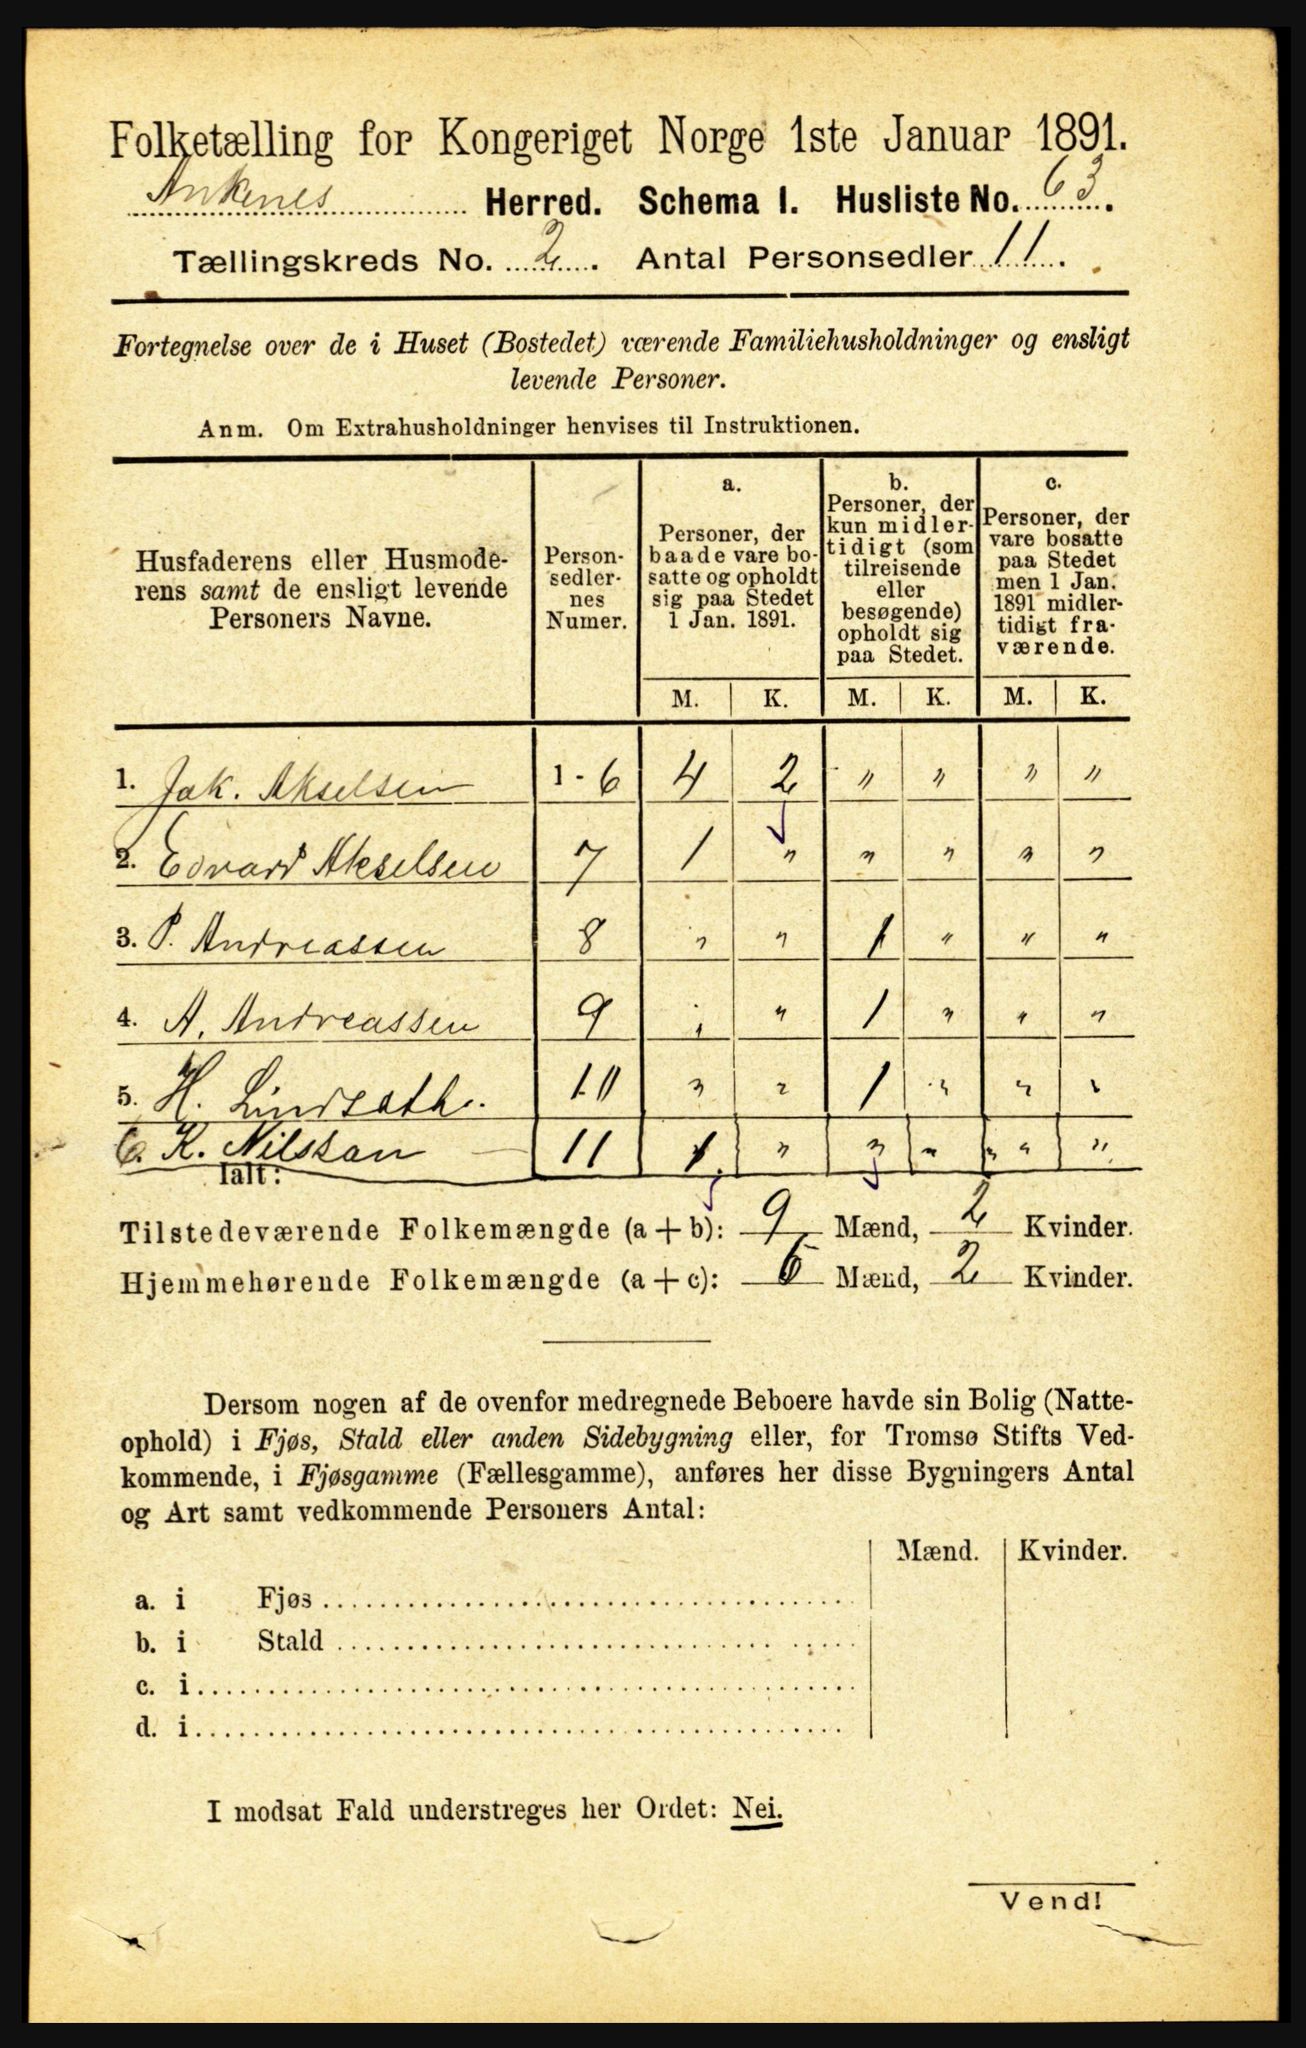 Folketælling for Kongeriget Norge 1ste Januar 1891.
Ankenes Herred. Schema I. Husliste No. 63.
Tællingskreds No. 2. Antal Personsedler 11.
Fortegnelse over de i Huset (Bostedet) værende Familiehusholdninger og ensligt
levende Personer.
Anm. Om Extrahusholdninger henvises til Instruktionen.
Husfaderens eller Husmode-
rens samt de ensligt levende
Personers Navne.
Person-
sedler-
nes
Numer.
a.
Personer, der
baade vare bo-
satte og opholdt
sig paa Stedet
1 Jan. 1891.
b.
Personer, der
kun midler-
tidigt (som
tilreisende
eller
besøgende)
opholdt sig
paa Stedet.
c.
Personer, der
vare bosatte
paa Stedet
men 1 Jan.
1891 midler-
tidigt fra-
værende.
M. K. M. K. M. K.
1. Jak. Akselsen 1-6 4 2 " " " "
2. Edvard Akselsen 7 1 " " " " "
3. P. Andreassen 8 " " 1 " " "
4. A. Andreassen 9 " " 1 " " "
5. H. Lindseth. 10 " " 1 " " "
6. K. Nilsson 11 1 " " " " "
Ialt:
Tilstedeværende Folkemængde (a + b): 9 Mænd, 2 Kvinder.
Hjemmehørende Folkemængde (a + c): 6 Mænd, 2 Kvinder.
Dersom nogen af de ovenfor medregnede Beboere havde sin Bolig (Natte-
ophold) i Fjøs, Stald eller anden Sidebygning eller, for Tromsø Stifts Ved-
kommende, i Fjøsgamme (Fællesgamme), anføres her disse Bygningers Antal
og Art samt vedkommende Personers Antal:
Mænd. Kvinder.
a. i Fjøs
b. i Stald
c. i
d. i
I modsat Fald understreges her Ordet: Nei.
Vend!